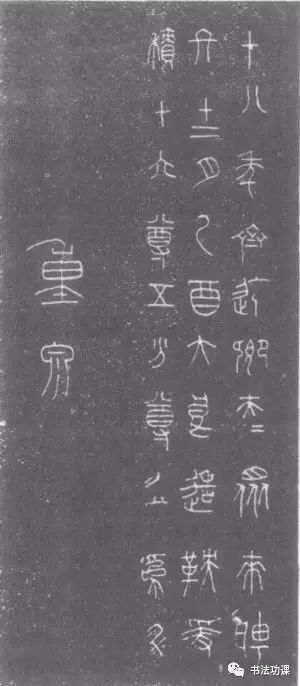 十八年齊遣卿大夫眾來聘
冬十二月乙酉大良造鞅爰
積十六尊五分尊壹為升
重泉
书法功课